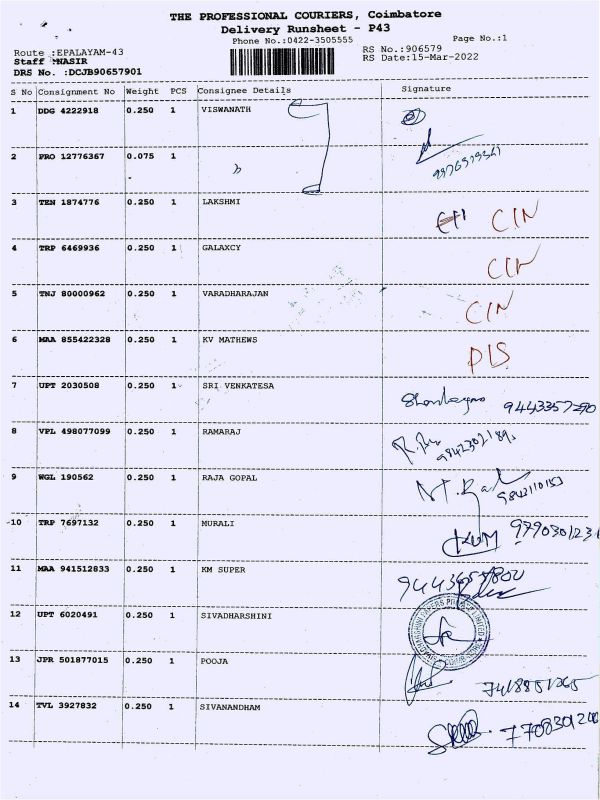 THE PROFESSIONAL COURIERS, Coimbatore
Delivery Runsheet - P43
Phone No.:0422-3505555
Page No.:1
Route :EPALAYAM-43
RS No.:906579
Staff :NASIR
RS Date:15-Mar-2022
DRS No. :DCJB90657901
S No Consignment No Weight PCS Consignee Details Signature
1 DDG 4222918 0.250 1 VISWANATH
2 PRO 12776367 0.075 1
3 TEN 1874776 0.250 1 LAKSHMI CIN
4 TRP 6469936 0.250 1 GALAXCY CIN
5 TNJ 80000962 0.250 1 VARADHARAJAN CIN
6 MAA 855422328 0.250 1 KV MATHEWS PLS
7 UPT 2030508 0.250 1 SRI VENKATESA
8 VPL 498077099 0.250 1 RAMARAJ
9 WGL 190562 0.250 1 RAJA GOPAL 9843110153
-10 TRP 7697132 0.250 1 MURALI
11 MAA 941512833 0.250 1 KM SUPER
12 UPT 6020491 0.250 1 SIVADHARSHINI
13 JPR 501877015 0.250 1 POOJA 7418851265
14 TVL 3927832 0.250 1 SIVANANDHAM